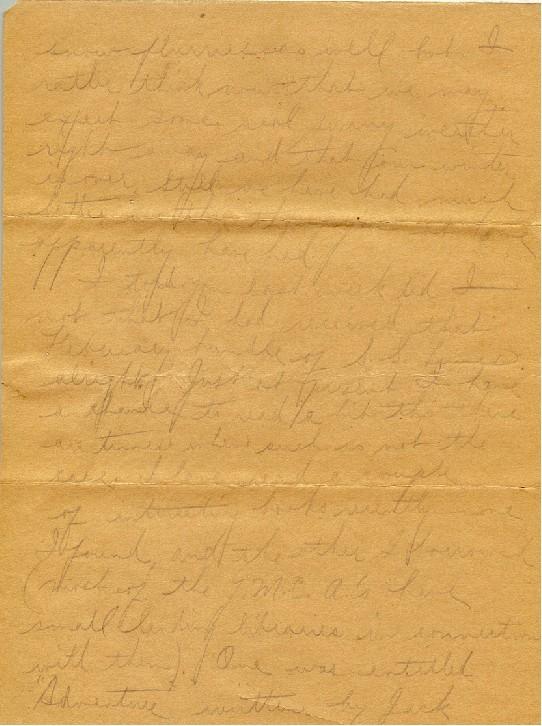 snow flurries as well but I
rather think now that we may
expect some real sunny weather
right away and that our winter
is over, still we have had much
better weather
apparently have had.
I told you last week did I
not that I had received that
February bundle of
alright. Just at present I have
a chance to read a bit tho there
are times when such is not the
case. I have read a couple
of interesting books recently, one
I found, and the other I borrowed
(most of the Y.M.C.A.'s have
small lending libraries in connection
with them). One was entitled
"Adventure" written by Jack